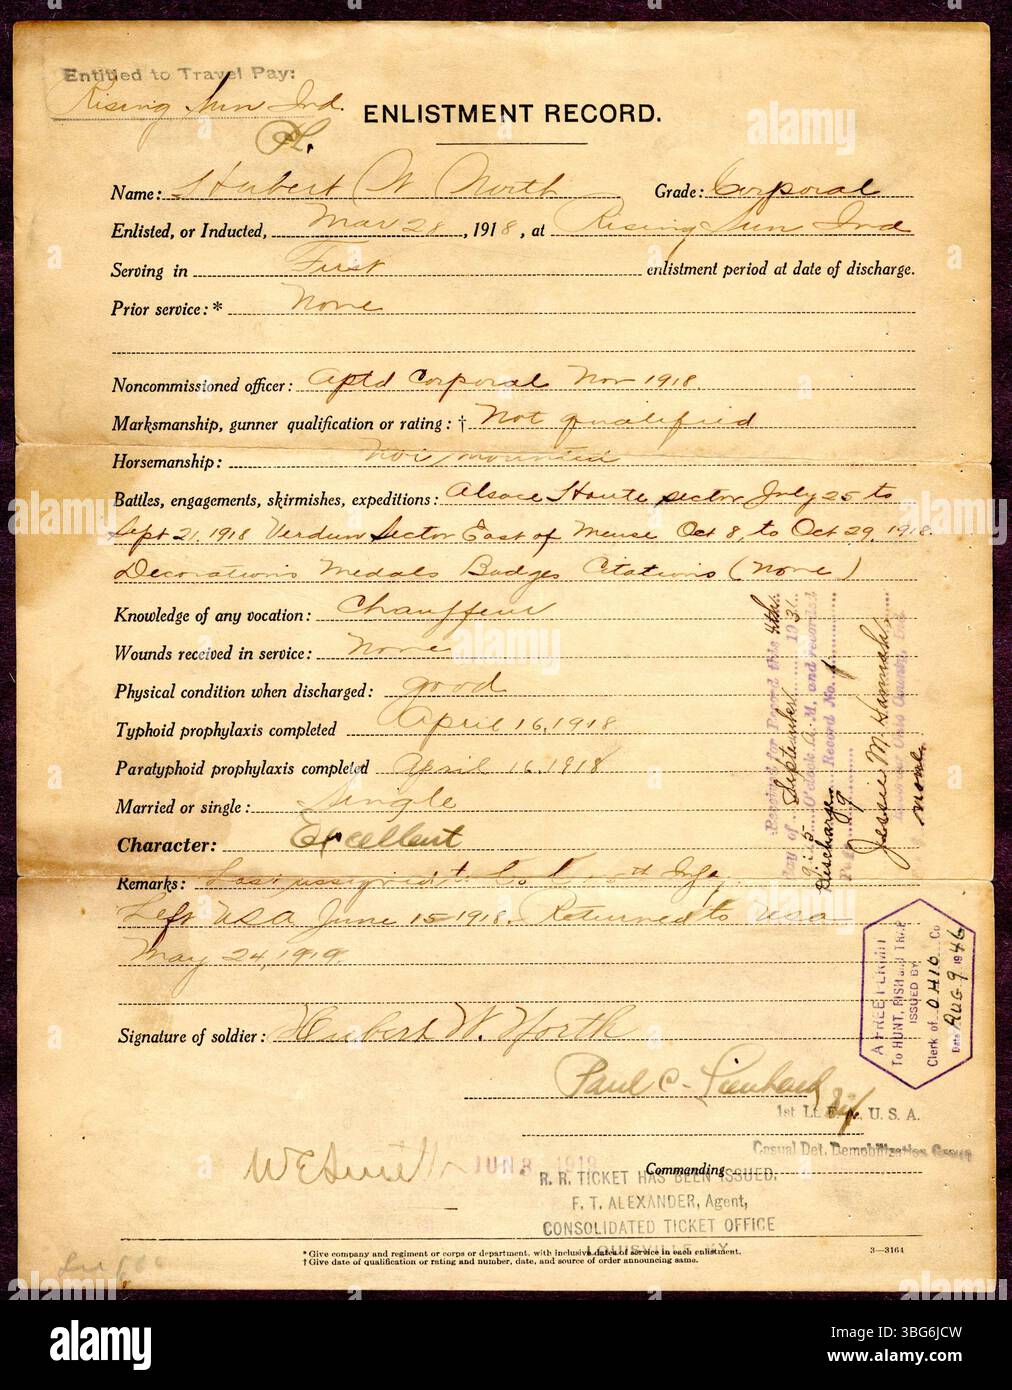 Entitled to Travel Pay:
Rising Sun Ind.
ENLISTMENT RECORD.
Name: Hubert W North Grade: Corporal
Enlisted, or Inducted, Mar 28, 1918, at Rising Sun Ind
Serving in First enlistment period at date of discharge.
Prior service:* None
Noncommissioned officer: Aptd Corporal Nov 1918
Marksmanship, gunner qualification or rating:† Not qualified
Horsemanship: Not mounted
Battles, engagements, skirmishes, expeditions: Alsace Haute sector July 25 to
Sept 21, 1918 Verdun Sector East of Meuse Oct 8, to Oct 29, 1918.
Decorations Medals Badges Citations (None)
Knowledge of any vocation: Chauffeur
Wounds received in service: None
Physical condition when discharged: good
Typhoid prophylaxis completed April 16, 1918
Paratyphoid prophylaxis completed April 16, 1918
Married or single: Single
Character: Excellent
Remarks: Last assigned to Co Inf
Left USA June 15 1918. Returned to USA
May 24, 1919
Received for Record this 4th
Day of September 1931
9:15 O'clock A.M. and recorded
Discharge Record No. 1
Page 99
Jessie M. Hannah
Recorder Ohio County, Ind.
none
A FREE PERMIT
To HUNT, FISH and TRAP
ISSUED BY
Clerk of OHIO Co
Date AUG 9 1946
Signature of soldier: Hubert W. North
Paul C.
1st Lt. Inf. U. S. A.
Casual Det. Demobilization Group
Commanding
JUN 3 1919
R. R. TICKET HAS BEEN ISSUED.
F. T. ALEXANDER, Agent,
CONSOLIDATED TICKET OFFICE
LOUISVILLE KY
*Give company and regiment or corps or department, with inclusive dates of service in each enlistment.
†Give date of qualification or rating and number, date, and source of order announcing same.
3—3164
alamy
Image ID: 3BG6JCW
www.alamy.com